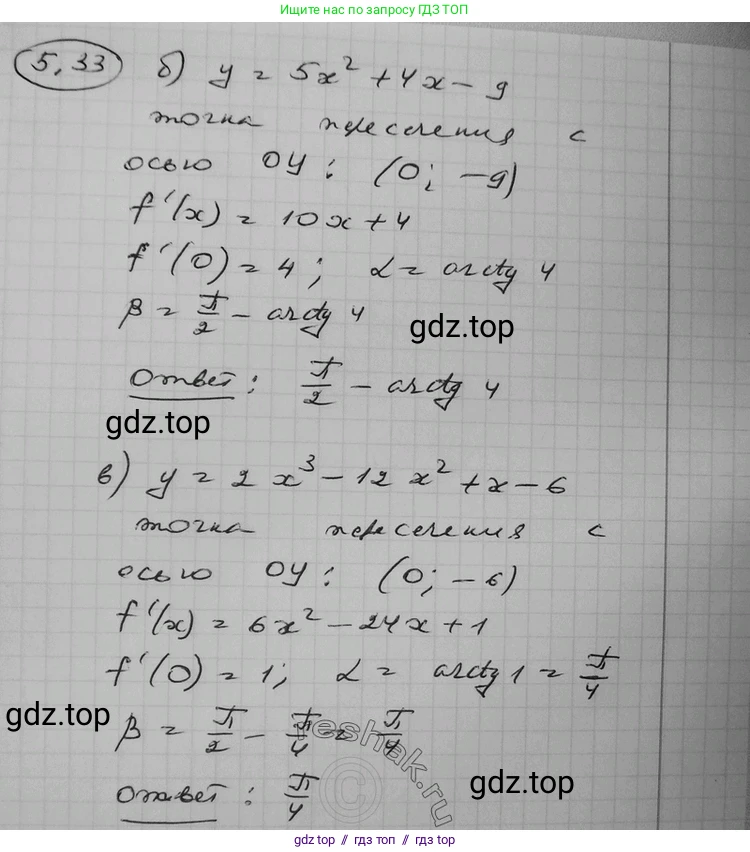 Ищите нас по запросу ГДЗ ТОП
5.33 б) y = 5x² + 4x - 9
точка пересечения с
осью OY: (0; -9)
f'(x) = 10x + 4
f'(0) = 4; α = arctg 4
β = π/2 - arctg 4
gdz.top
Ответ: π/2 - arctg 4
gdz.top
в) y = 2x³ - 12x² + x - 6
точка пересечения с
осью OY: (0; -6)
f'(x) = 6x² - 24x + 1
f'(0) = 1; α = arctg 1 = π/4
gdz.top
β = π/2 - π/4 = π/4
reshak.ru
©
gdz.top
Ответ: π/4
gdz.top // гдз топ // gdz top